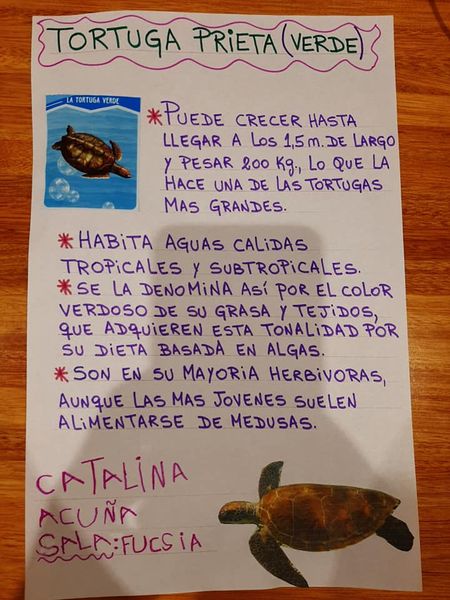 TORTUGA PRIETA (VERDE)
LA TORTUGA VERDE
* PUEDE CRECER HASTA
LLEGAR A LOS 1,5 m. DE LARGO
Y PESAR 200 Kg., LO QUE LA
HACE UNA DE LAS TORTUGAS
MAS GRANDES.
* HABITA AGUAS CALIDAS
TROPICALES Y SUBTROPICALES.
* SE LA DENOMINA ASÍ POR EL COLOR
VERDOSO DE SU GRASA Y TEJIDOS,
QUE ADQUIEREN ESTA TONALIDAD POR
SU DIETA BASADA EN ALGAS.
* SON EN SU MAYORIA HERBIVORAS,
AUNQUE LAS MAS JOVENES SUELEN
ALIMENTARSE DE MEDUSAS.
CATALINA
ACUÑA
SALA: FUCSIA